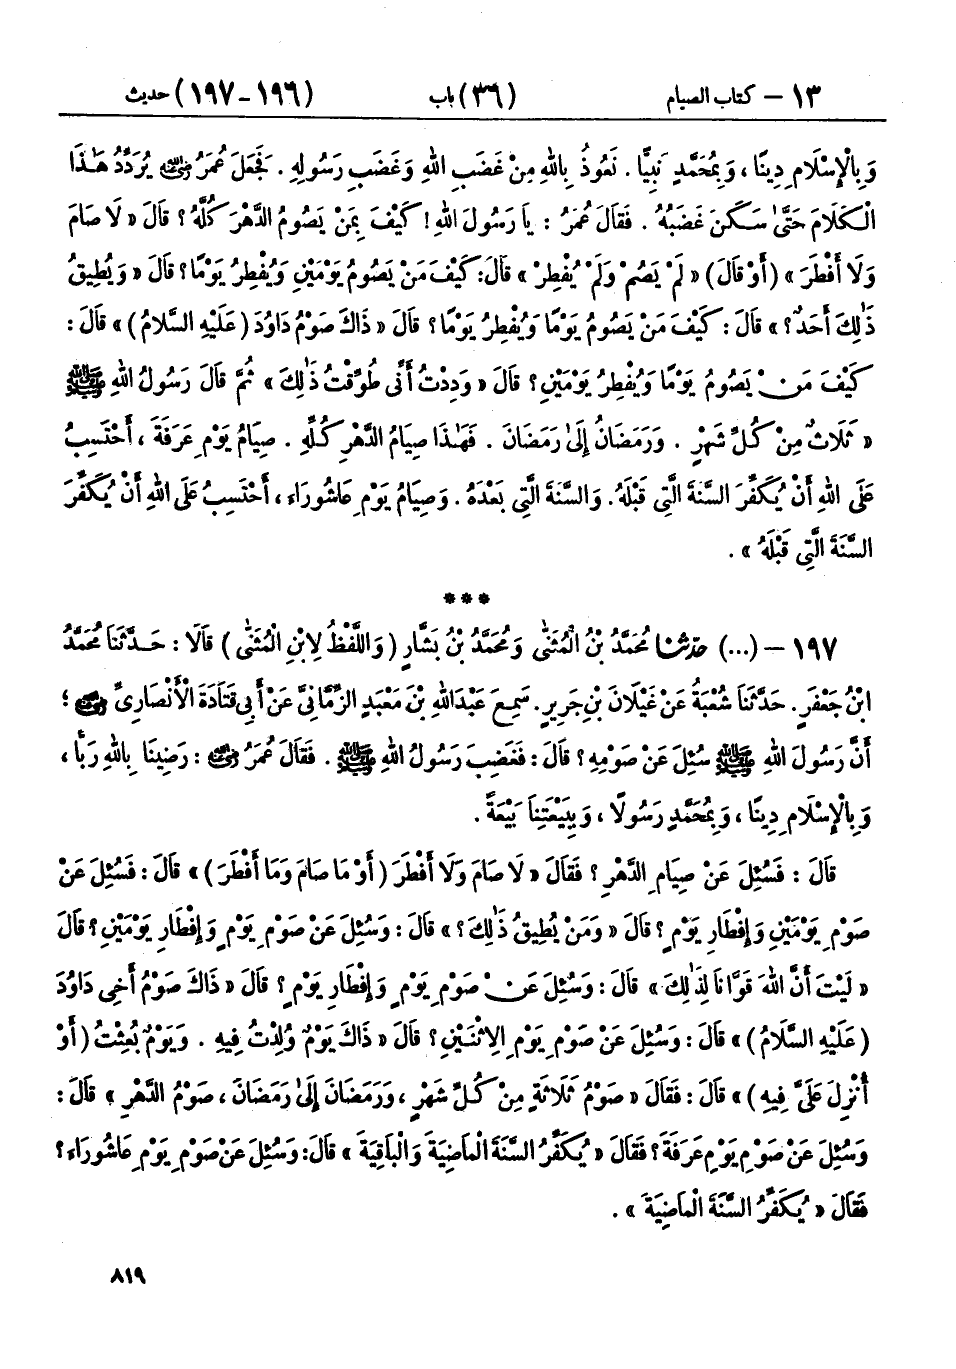 ١٣ – كتاب الصيام (٣٦) باب (١٩٦-١٩٧) حديث
وَبِالْإِسْلَامِ دِينًا ، وَبِمُحَمَّدٍ نَبِيًّا . نَعُوذُ بِاللهِ مِنْ غَضَبِ اللهِ وَغَضَبِ رَسُولِهِ . فَجَعَلَ عُمَرُ رَضِيَ اللهُ عَنْهُ يُرَدِّدُ هَٰذَا
الْكَلَامَ حَتَّىٰ سَكَنَ غَضَبُهُ . فَقَالَ عُمَرُ : يَا رَسُولَ اللهِ ! كَيْفَ بِمَنْ يَصُومُ الدَّهْرَ كُلَّهُ ؟ قَالَ « لَا صَامَ
وَلَا أَفْطَرَ » ( أَوْ قَالَ ) « لَمْ يَصُمْ وَلَمْ يُفْطِرْ » قَالَ : كَيْفَ مَنْ يَصُومُ يَوْمَيْنِ وَيُفْطِرُ يَوْمًا ؟ قَالَ « وَيُطِيقُ
ذَٰلِكَ أَحَدٌ ؟ » قَالَ : كَيْفَ مَنْ يَصُومُ يَوْمًا وَيُفْطِرُ يَوْمًا ؟ قَالَ « ذَاكَ صَوْمُ دَاوُدَ ( عَلَيْهِ السَّلَامُ ) » قَالَ :
كَيْفَ مَنْ يَصُومُ يَوْمًا وَيُفْطِرُ يَوْمَيْنِ ؟ قَالَ « وَدِدْتُ أَنِّي طُوِّقْتُ ذَٰلِكَ » ثُمَّ قَالَ رَسُولُ اللهِ ﷺ
« ثَلَاثٌ مِنْ كُلِّ شَهْرٍ . وَرَمَضَانُ إِلَىٰ رَمَضَانَ . فَهَٰذَا صِيَامُ الدَّهْرِ كُلِّهِ . صِيَامُ يَوْمِ عَرَفَةَ ، أَحْتَسِبُ
عَلَى اللهِ أَنْ يُكَفِّرَ السَّنَةَ الَّتِي قَبْلَهُ . وَالسَّنَةَ الَّتِي بَعْدَهُ . وَصِيَامُ يَوْمِ عَاشُورَاءَ ، أَحْتَسِبُ عَلَى اللهِ أَنْ يُكَفِّرَ
السَّنَةَ الَّتِي قَبْلَهُ » .
***
١٩٧ – (...) حدّثنا مُحَمَّدُ بْنُ الْمُثَنَّىٰ وَمُحَمَّدُ بْنُ بَشَّارٍ ( وَاللَّفْظُ لِابْنِ الْمُثَنَّىٰ ) قَالَا : حَدَّثَنَا مُحَمَّدُ
ابْنُ جَعْفَرٍ . حَدَّثَنَا شُعْبَةُ عَنْ غَيْلَانَ بْنِ جَرِيرٍ . سَمِعَ عَبْدَاللهِ بْنَ مَعْبَدٍ الزِّمَّانِيَّ عَنْ أَبِي قَتَادَةَ الْأَنْصَارِيِّ رَضِيَ اللهُ عَنْهُ ؛
أَنَّ رَسُولَ اللهِ ﷺ سُئِلَ عَنْ صَوْمِهِ ؟ قَالَ : فَغَضِبَ رَسُولُ اللهِ ﷺ . فَقَالَ عُمَرُ رَضِيَ اللهُ عَنْهُ : رَضِينَا بِاللهِ رَبًّا ،
وَبِالْإِسْلَامِ دِينًا ، وَبِمُحَمَّدٍ رَسُولًا ، وَبِبَيْعَتِنَا بَيْعَةً .
قَالَ : فَسُئِلَ عَنْ صِيَامِ الدَّهْرِ ؟ فَقَالَ « لَا صَامَ وَلَا أَفْطَرَ ( أَوْ مَا صَامَ وَمَا أَفْطَرَ ) » قَالَ : فَسُئِلَ عَنْ
صَوْمِ يَوْمَيْنِ وَإِفْطَارِ يَوْمٍ ؟ قَالَ « وَمَنْ يُطِيقُ ذَٰلِكَ ؟ » قَالَ : وَسُئِلَ عَنْ صَوْمِ يَوْمٍ وَإِفْطَارِ يَوْمَيْنِ ؟ قَالَ
« لَيْتَ أَنَّ اللهَ قَوَّانَا لِذَٰلِكَ » قَالَ : وَسُئِلَ عَنْ صَوْمِ يَوْمٍ وَإِفْطَارِ يَوْمٍ ؟ قَالَ « ذَاكَ صَوْمُ أَخِي دَاوُدَ
( عَلَيْهِ السَّلَامُ ) » قَالَ : وَسُئِلَ عَنْ صَوْمِ يَوْمِ الِاثْنَيْنِ ؟ قَالَ « ذَاكَ يَوْمٌ وُلِدْتُ فِيهِ . وَيَوْمٌ بُعِثْتُ ( أَوْ
أُنْزِلَ عَلَيَّ فِيهِ ) » قَالَ : فَقَالَ « صَوْمُ ثَلَاثَةٍ مِنْ كُلِّ شَهْرٍ ، وَرَمَضَانَ إِلَىٰ رَمَضَانَ ، صَوْمُ الدَّهْرِ » قَالَ :
وَسُئِلَ عَنْ صَوْمِ يَوْمِ عَرَفَةَ ؟ فَقَالَ « يُكَفِّرُ السَّنَةَ الْمَاضِيَةَ وَالْبَاقِيَةَ » قَالَ : وَسُئِلَ عَنْ صَوْمِ يَوْمِ عَاشُورَاءَ ؟
فَقَالَ « يُكَفِّرُ السَّنَةَ الْمَاضِيَةَ » .
٨١٩